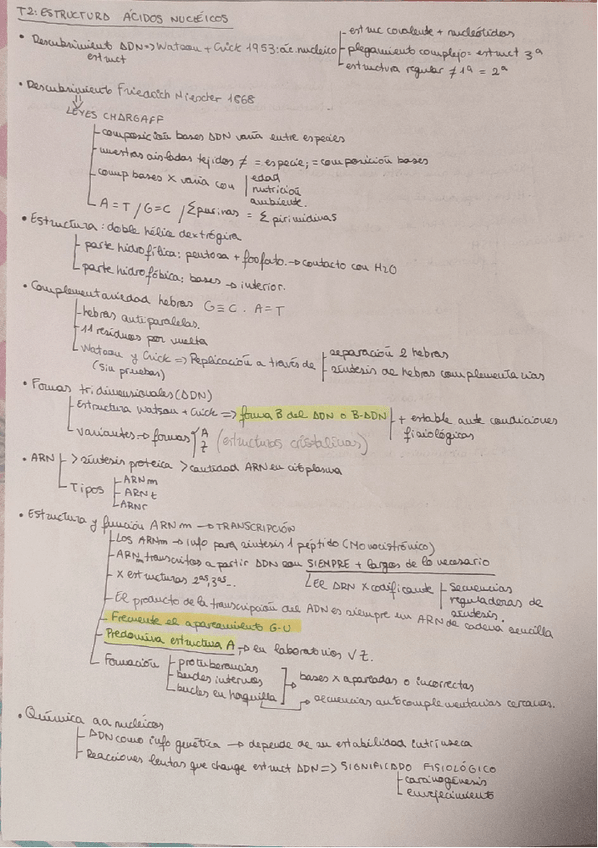 T2: ESTRUCTURA ÁCIDOS NUCLÉICOS
• Descubrimiento ADN => Watson + Crick 1953: ác. nucleico
estruct
- estruc covalente + nucleótidos
- plegamiento complejo = estruct 3ª
- estructura regular ≠ 1ª = 2ª
• Descubrimiento Friedrich Miescher 1868
LEYES CHARGAFF
- composición bases ADN varía entre especies
- muestras aisladas tejidos ≠ = especie; = composición bases
- comp bases x varía con
edad
nutrición
ambiente.
- A = T / G = C / Σ purinas = Σ pirimidinas
• Estructura: doble hélice dextrógira
- parte hidrofílica: pentosa + fosfato. → contacto con H2O
- parte hidrofóbica: bases → interior.
• Complementariedad hebras G≡C. A=T
- hebras antiparalelas.
- 11 residuos por vuelta
- Watson y Crick => Replicación a través de
(sin pruebas)
- separación 2 hebras
- síntesis de hebras complementarias
• Formas tridimensionales (ADN)
- Estructura Watson + Crick => forma B del ADN o B-ADN
+ estable ante condiciones
fisiológicas
- variantes → formas A
Z (estructuras cristalinas)
• ARN - > síntesis proteica > cantidad ARN en citoplasma
- Tipos
- ARNm
- ARNt
- ARNr
• Estructura y función ARNm → TRANSCRIPCIÓN
- Los ARNm → info para síntesis 1 péptido (Monocistrónico)
- ARNm transcritos a partir ADN son SIEMPRE + largos de lo necesario
- X estructuras 2as, 3as.
- El ARN x codificante
- secuencias
reguladoras de
síntesis.
- El producto de la transcripción del ADN es siempre un ARN de cadena sencilla
- Frecuente el apareamiento G-U
- Predomina estructura A → en laboratorios V Z.
- Formación
- protuberancias
- bucles internos
- bucles en horquilla
→ bases x apartadas o incorrectas
→ secuencias autocomplementarias cercanas.
• Química aa nucleicos
- ADN como info genética → depende de su estabilidad intrínseca
- Reacciones lentas que change estruct ADN => SIGNIFICADO FISIOLÓGICO
- carcinogénesis
- envejecimiento